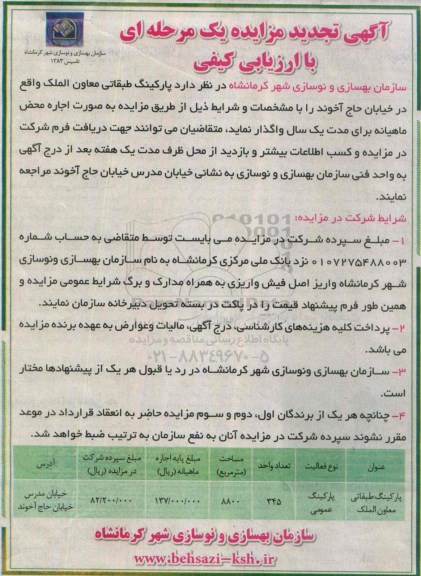 آگهی تجدید مزایده یک مرحله ای
با ارزیابی کیفی
سازمان بهسازی و نوسازی شهر کرمانشاه
تاسیس ۱۳۸۳
سازمان بهسازی و نوسازی شهر کرمانشاه در نظر دارد پارکینگ طبقاتی معاون الملک واقع
در خیابان حاج آخوند را با مشخصات و شرایط ذیل از طریق مزایده به صورت اجاره محض
ماهیانه برای مدت یک سال واگذار نماید، متقاضیان می توانند جهت دریافت فرم شرکت
در مزایده و کسب اطلاعات بیشتر و بازدید از محل ظرف مدت یک هفته بعد از درج آگهی
به واحد فنی سازمان بهسازی و نوسازی به نشانی خیابان مدرس خیابان حاج آخوند مراجعه
نمایند.
شرایط شرکت در مزایده:
۱- مبلغ سپرده شرکت در مزایده می بایست توسط متقاضی به حساب شماره
۰۱۰۷۲۷۵۴۸۸۰۰۳ نزد بانک ملی مرکزی کرمانشاه به نام سازمان بهسازی ونوسازی
شهر کرمانشاه واریز اصل فیش واریزی به همراه مدارک و برگ شرایط عمومی مزایده و
همین طور فرم پیشنهاد قیمت را در پاکت در بسته تحویل دبیرخانه سازمان نمایند.
۲- پرداخت کلیه هزینه‌های کارشناسی، درج آگهی، مالیات وعوارض به عهده برنده مزایده
می باشد.
پایگاه اطلاع رسانی مناقصه و مزایده
۰۲۱-۸۸۳۴۹۶۷۰-۵
۳- سازمان بهسازی ونوسازی شهر کرمانشاه در رد یا قبول هر یک از پیشنهادها مختار
است.
۴- چنانچه هر یک از برندگان اول، دوم و سوم مزایده حاضر به انعقاد قرارداد در موعد
مقرر نشوند سپرده شرکت در مزایده آنان به نفع سازمان به ترتیب ضبط خواهد شد.
عنوان نوع فعالیت تعداد واحد مساحت (مترمربع) مبلغ پایه اجاره ماهیانه (ریال) مبلغ سپرده شرکت در مزایده (ریال) آدرس
پارکینگ طبقاتی معاون الملک پارکینگ عمومی ۳۴۵ ۸۸۰۰ ۱۳۷/۰۰۰/۰۰۰ ۸۲/۲۰۰/۰۰۰ خیابان مدرس خیابان حاج آخوند
سازمان بهسازی و نوسازی شهر کرمانشاه
www.behsazi-ksh.ir